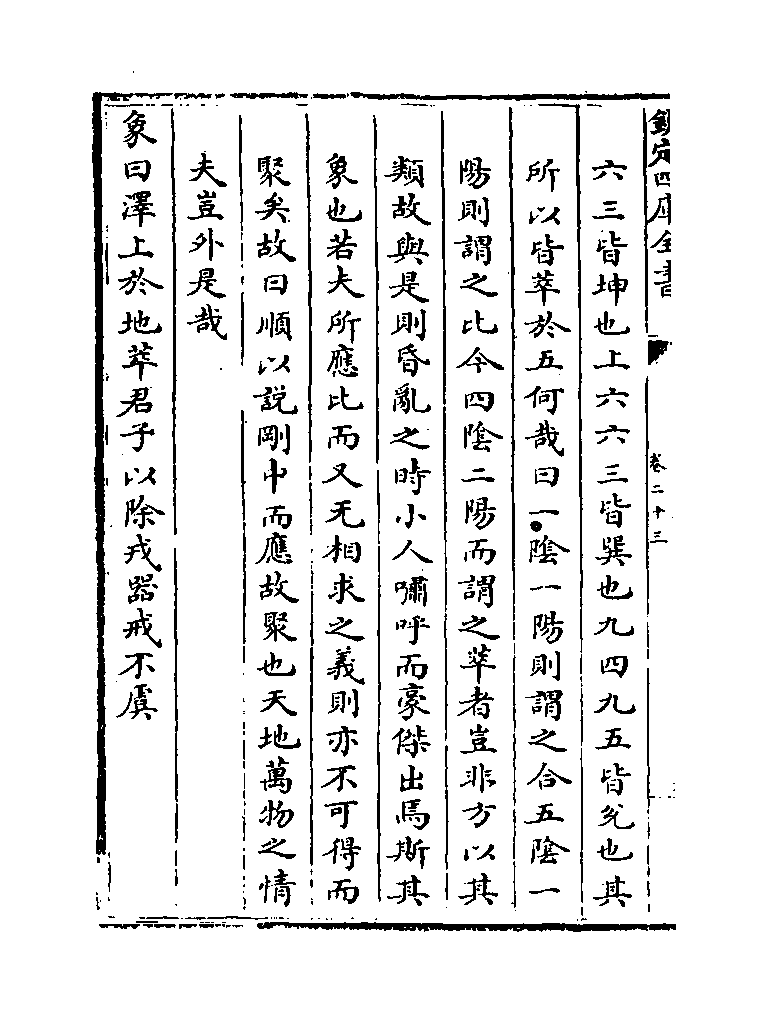 欽定四庫全書
卷二十三
六三皆坤也上六六三皆巽也九四九五皆兊也其
所以皆萃於五何哉曰一陰一陽則謂之合五陰一
陽則謂之比今四陰二陽而謂之萃者豈非方以其
類故與是則昏亂之時小人嘯呼而豪傑出焉斯其
象也若夫所應比而又无相求之義則亦不可得而
聚矣故曰順以說剛中而應故聚也天地萬物之情
夫豈外是哉
象曰澤上於地萃君子以除戎器戒不虞